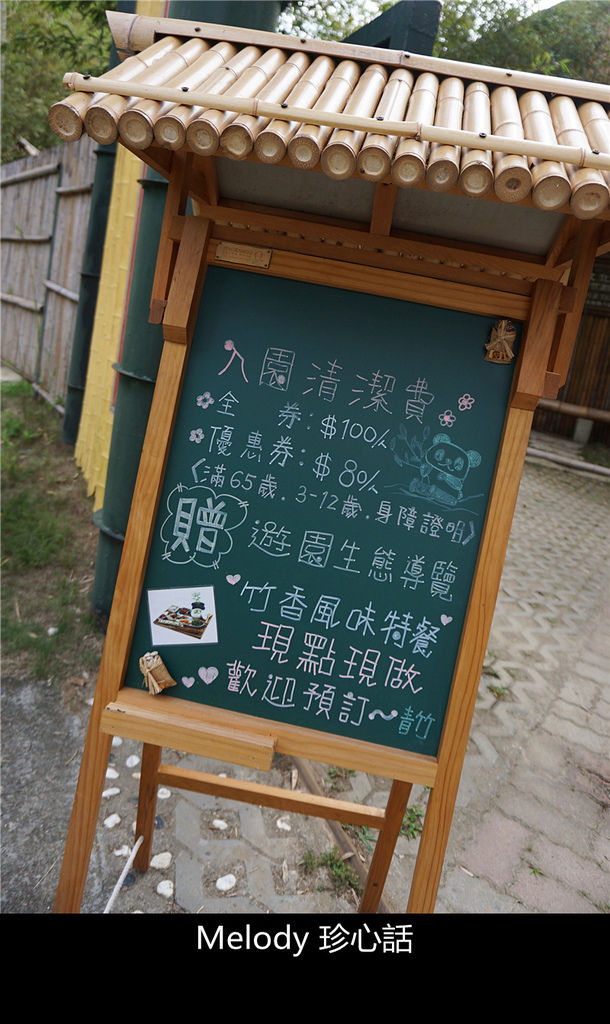 入園清潔費
全 券:$100/人
優惠券:$80/人
(滿65歲.3-12歲.身障證明)
贈 遊園生態導覽
竹香風味特餐
現點現做
歡迎預訂~青竹
Melody 珍心話